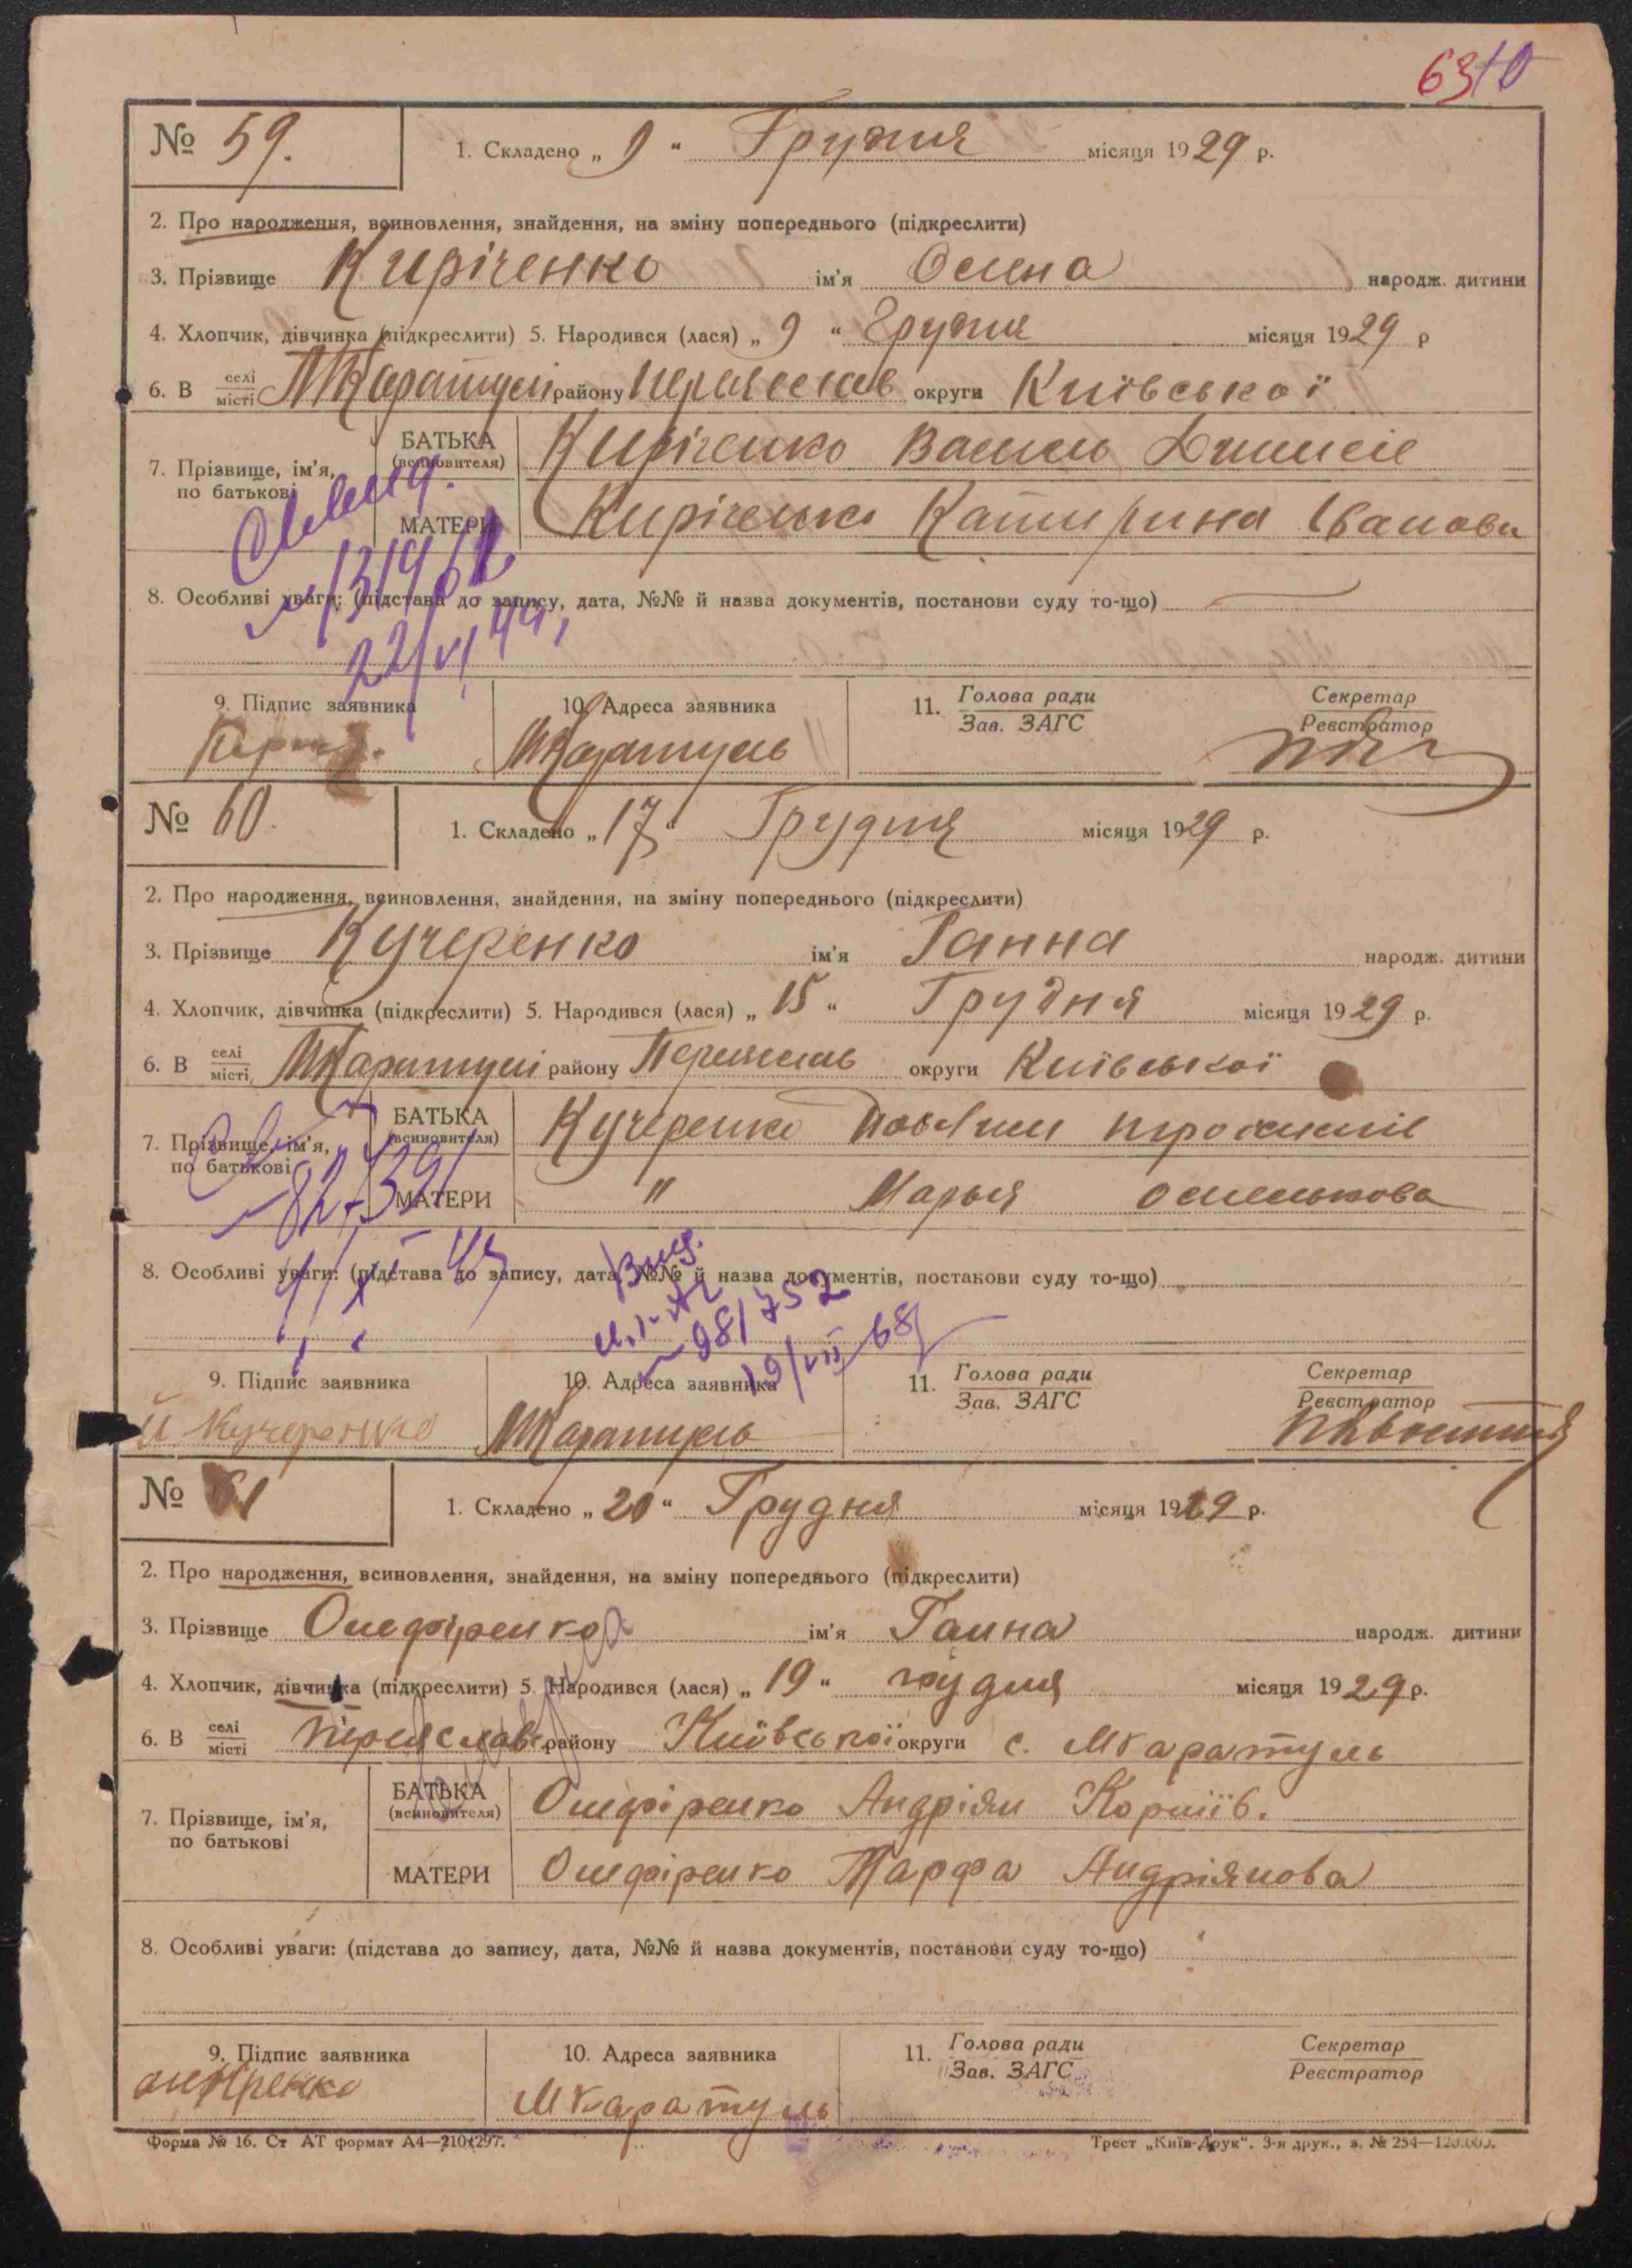 63
№ 59. 1. Складено „ 9 “ Грудня місяця 1929 р.
2. Про народження, всиновлення, знайдення, на зміну попереднього (підкреслити)
3. Прізвище Киріченко ім'я Олена народж. дитини
4. Хлопчик, дівчинка (підкреслити) 5. Народився (лася) „ 9 “ Грудня місяця 1929 р
6. В селі місті МКаратулі району Переяслав округи Київської
БАТЬКА (всиновителя) Киріченко Василь
7. Прізвище, ім'я, по батькові
МАТЕРИ Киріченко Катирина Іванова
8. Особливі уваги: (підстава до запису, дата, №№ й назва документів, постанови суду то-що)
22/VI 44,
9. Підпис заявника 10. Адреса заявника 11. Голова ради Зав. ЗАГС Секретар Реєстратор
МКаратуль
№ 60. 1. Складено „ 17 “ Грудня місяця 1929 р.
2. Про народження, всиновлення, знайдення, на зміну попереднього (підкреслити)
3. Прізвище Кучеренко ім'я Ганна народж. дитини
4. Хлопчик, дівчинка (підкреслити) 5. Народився (лася) „ 15 “ Грудня місяця 1929 р.
6. В селі місті МКаратулі району округи Київської
БАТЬКА (всиновителя) Кучеренко
7. Прізвище, ім'я, по батькові
МАТЕРИ " Марья
8. Особливі уваги: (підстава до запису, дата, №№ й назва документів, постанови суду то-що)
98/752
19/VII 68
9. Підпис заявника 10. Адреса заявника 11. Голова ради Зав. ЗАГС Секретар Реєстратор
Кучеренко МКаратуль
№ 61 1. Складено „ 20 “ Грудня місяця 1929 р.
2. Про народження, всиновлення, знайдення, на зміну попереднього (підкреслити)
3. Прізвище Олефіренко ім'я Ганна народж. дитини
4. Хлопчик, дівчинка (підкреслити) 5. Народився (лася) „ 19 “ грудня місяця 1929 р.
6. В селі місті Переяслав. району Київської округи с. Мкаратуль
БАТЬКА (всиновителя) Олефіренко Андріян Корніїв.
7. Прізвище, ім'я, по батькові
МАТЕРИ Олефіренко Марфа Андріянова
8. Особливі уваги: (підстава до запису, дата, №№ й назва документів, постанови суду то-що)
9. Підпис заявника 10. Адреса заявника 11. Голова ради Зав. ЗАГС Секретар Реєстратор
Мкаратуль
Форма № 16. Ст АТ формат А4—210×297. Трест „Київ-Друк“. 3-я друк., з. № 254—120.000.